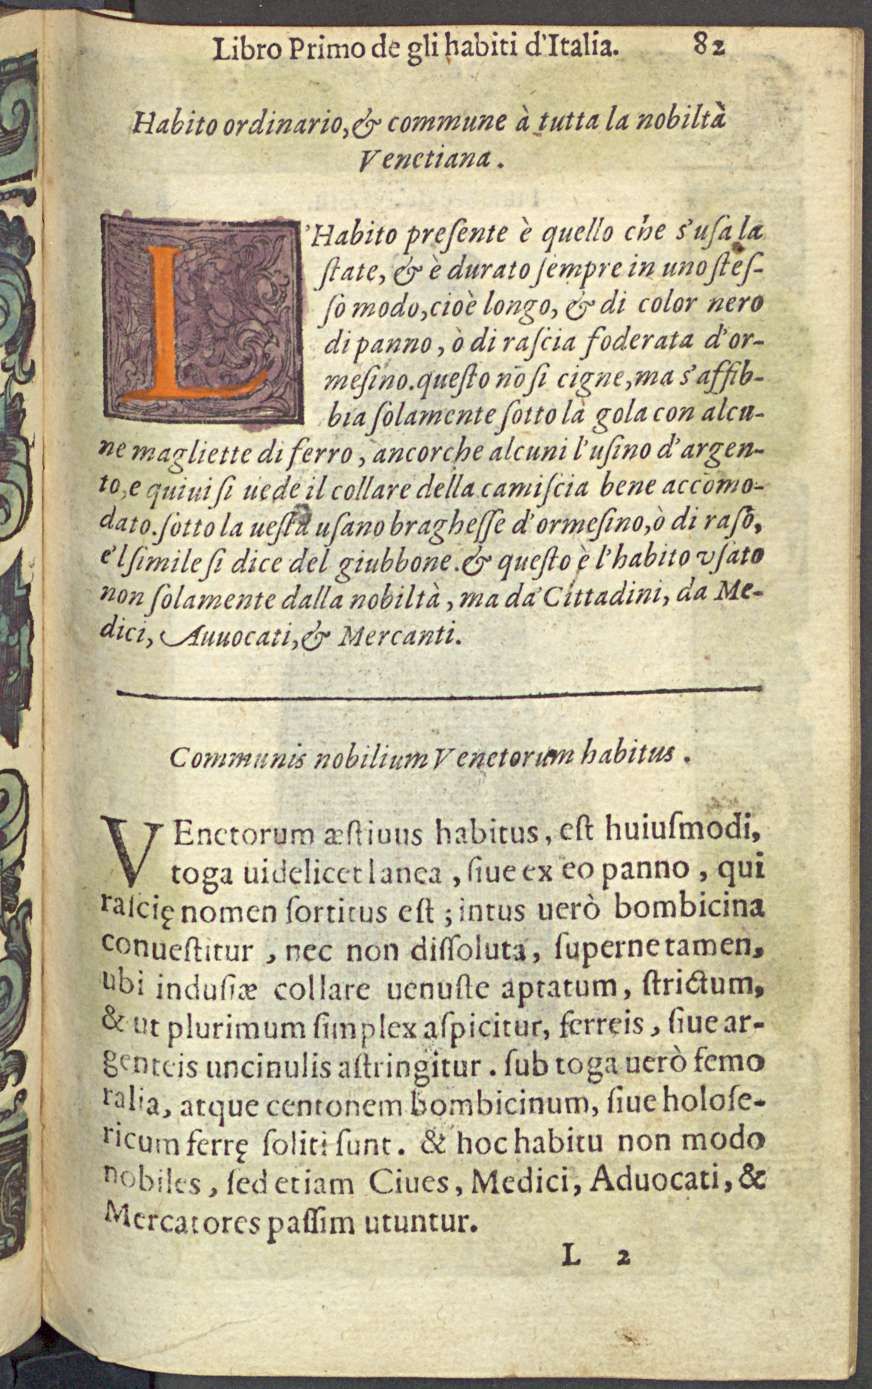 Libro Primo de gli habiti d'Italia. 82
Habito ordinario, & commune à tutta la nobiltà
Venetiana.
L'Habito preſente è quello che s'uſa la
ſtate, & è durato ſempre in uno ſteſ-
ſo modo, cioè longo, & di color nero
di panno, ò di raſcia foderata d'or-
meſino. queſto nō ſi cigne, ma s'affib-
bia ſolamente ſotto la gola con alcu-
ne magliette di ferro, ancorche alcuni l'uſino d'argen-
to, e quiui ſi uede il collare della camiſcia bene accomo-
dato. ſotto la ueſta uſano bragheſſe d'ormeſino, ò di raſo,
e'l ſimile ſi dice del giubbone. & queſto è l'habito vſato
non ſolamente dalla nobiltà, ma da Cittadini, da Me-
dici, Auuocati, & Mercanti.
Communis nobilium Venetorum habitus.
VEnetorum æſtiuus habitus, eſt huiuſmodi,
toga uidelicet lanea, ſiue ex eo panno, qui
raſcię nomen ſortitus eſt; intus uerò bombicina
conueſtitur, nec non diſſoluta, ſuperne tamen,
ubi induſiæ collare uenuſte aptatum, ſtrictum,
& ut plurimum ſimplex aſpicitur, ferreis, ſiue ar-
genteis uncinulis aſtringitur. ſub toga uerò femo
ralia, atque centonem bombicinum, ſiue holoſe-
ricum ferrę ſoliti ſunt. & hoc habitu non modo
nobiles, ſed etiam Ciues, Medici, Aduocati, &
Mercatores paſſim utuntur.
L 2